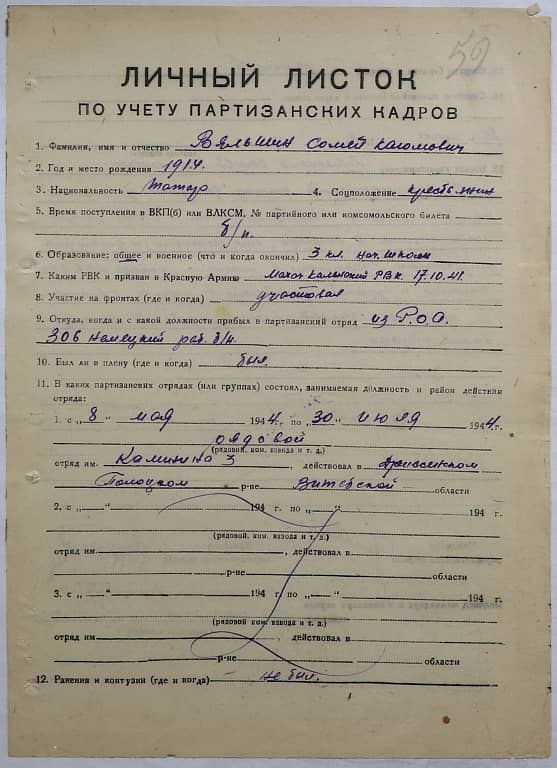 59
ЛИЧНЫЙ ЛИСТОК
ПО УЧЕТУ ПАРТИЗАНСКИХ КАДРОВ
1. Фамилия, имя и отчество Вяльшин Сомей Каюмович
2. Год и место рождения 1914.
3. Национальность Татар 4. Соцположение крестьянин
5. Время поступления в ВКП(б) или ВЛКСМ, № партийного или комсомольского билета
б/п.
6. Образование: общее и военное (что и когда окончил) 3 кл. нач. школы
7. Каким РВК и призван в Красную Армию РВК. 17.10.41.
8. Участие на фронтах (где и когда) участвовал
9. Откуда, когда и с какой должности прибыл в партизанский отряд из Р.О.А.
306 немецкий раб. б/н.
10. Был ли в плену (где и когда) был.
11. В каких партизанских отрядах (или группах) состоял, занимаемая должность и район действия
отряда:
1. с „ 8 “ мая 1944 г. по „30“ июля 1944 г.
рядовой
(рядовой, ком. взвода и т. д.)
отряд им. Калинина 3, действовал в Дриссенском
Полоцком р-не Витебской области
2. с „ “ 194 г. по „ “ 194 г.
(рядовой, ком. взвода и т. д.)
отряд им. , действовал в
р-не области
3. с „ “ 194 г. по „ “ 194 г.
(рядовой ком. взвода и т. д.)
отряд им. , действовал в
р-не области
12. Ранения и контузии (где и когда) не был.